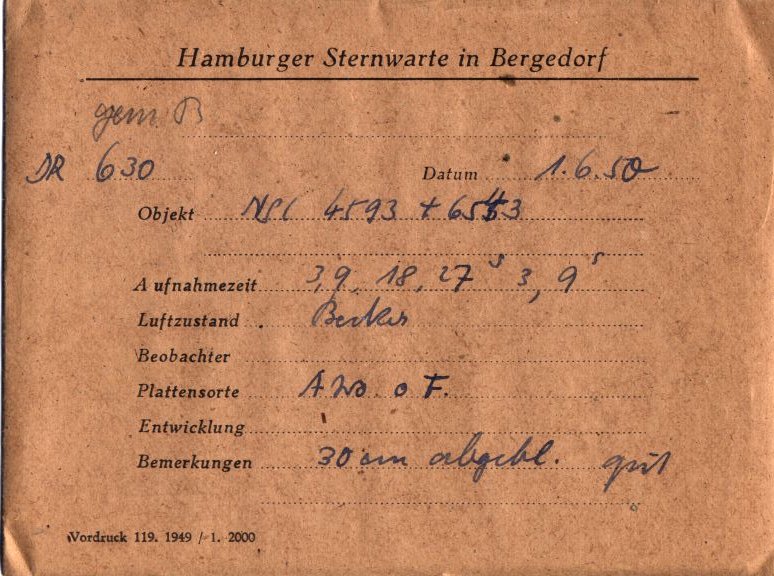 Hamburger Sternwarte in Bergedorf
gem B
DR 630 Datum 1.6.50
Objekt NGC 4593 + 6543
Aufnahmezeit 3, 9, 18, 27 s 3, 9 s
Luftzustand Becker
Beobachter
Plattensorte o F.
Entwicklung
Bemerkungen 30 cm abgebl. gut
Vordruck 119. 1949 / 1. 2000